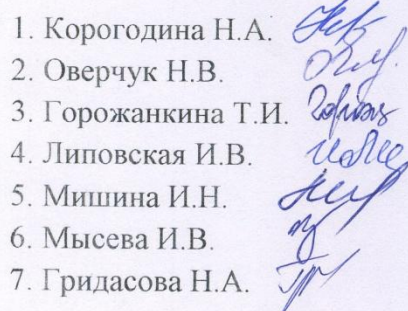 1. Корогодина Н.А.
2. Оверчук Н.В.
3. Горожанкина Т.И.
4. Липовская И.В.
5. Мишина И.Н.
6. Мысева И.В.
7. Гридасова Н.А.